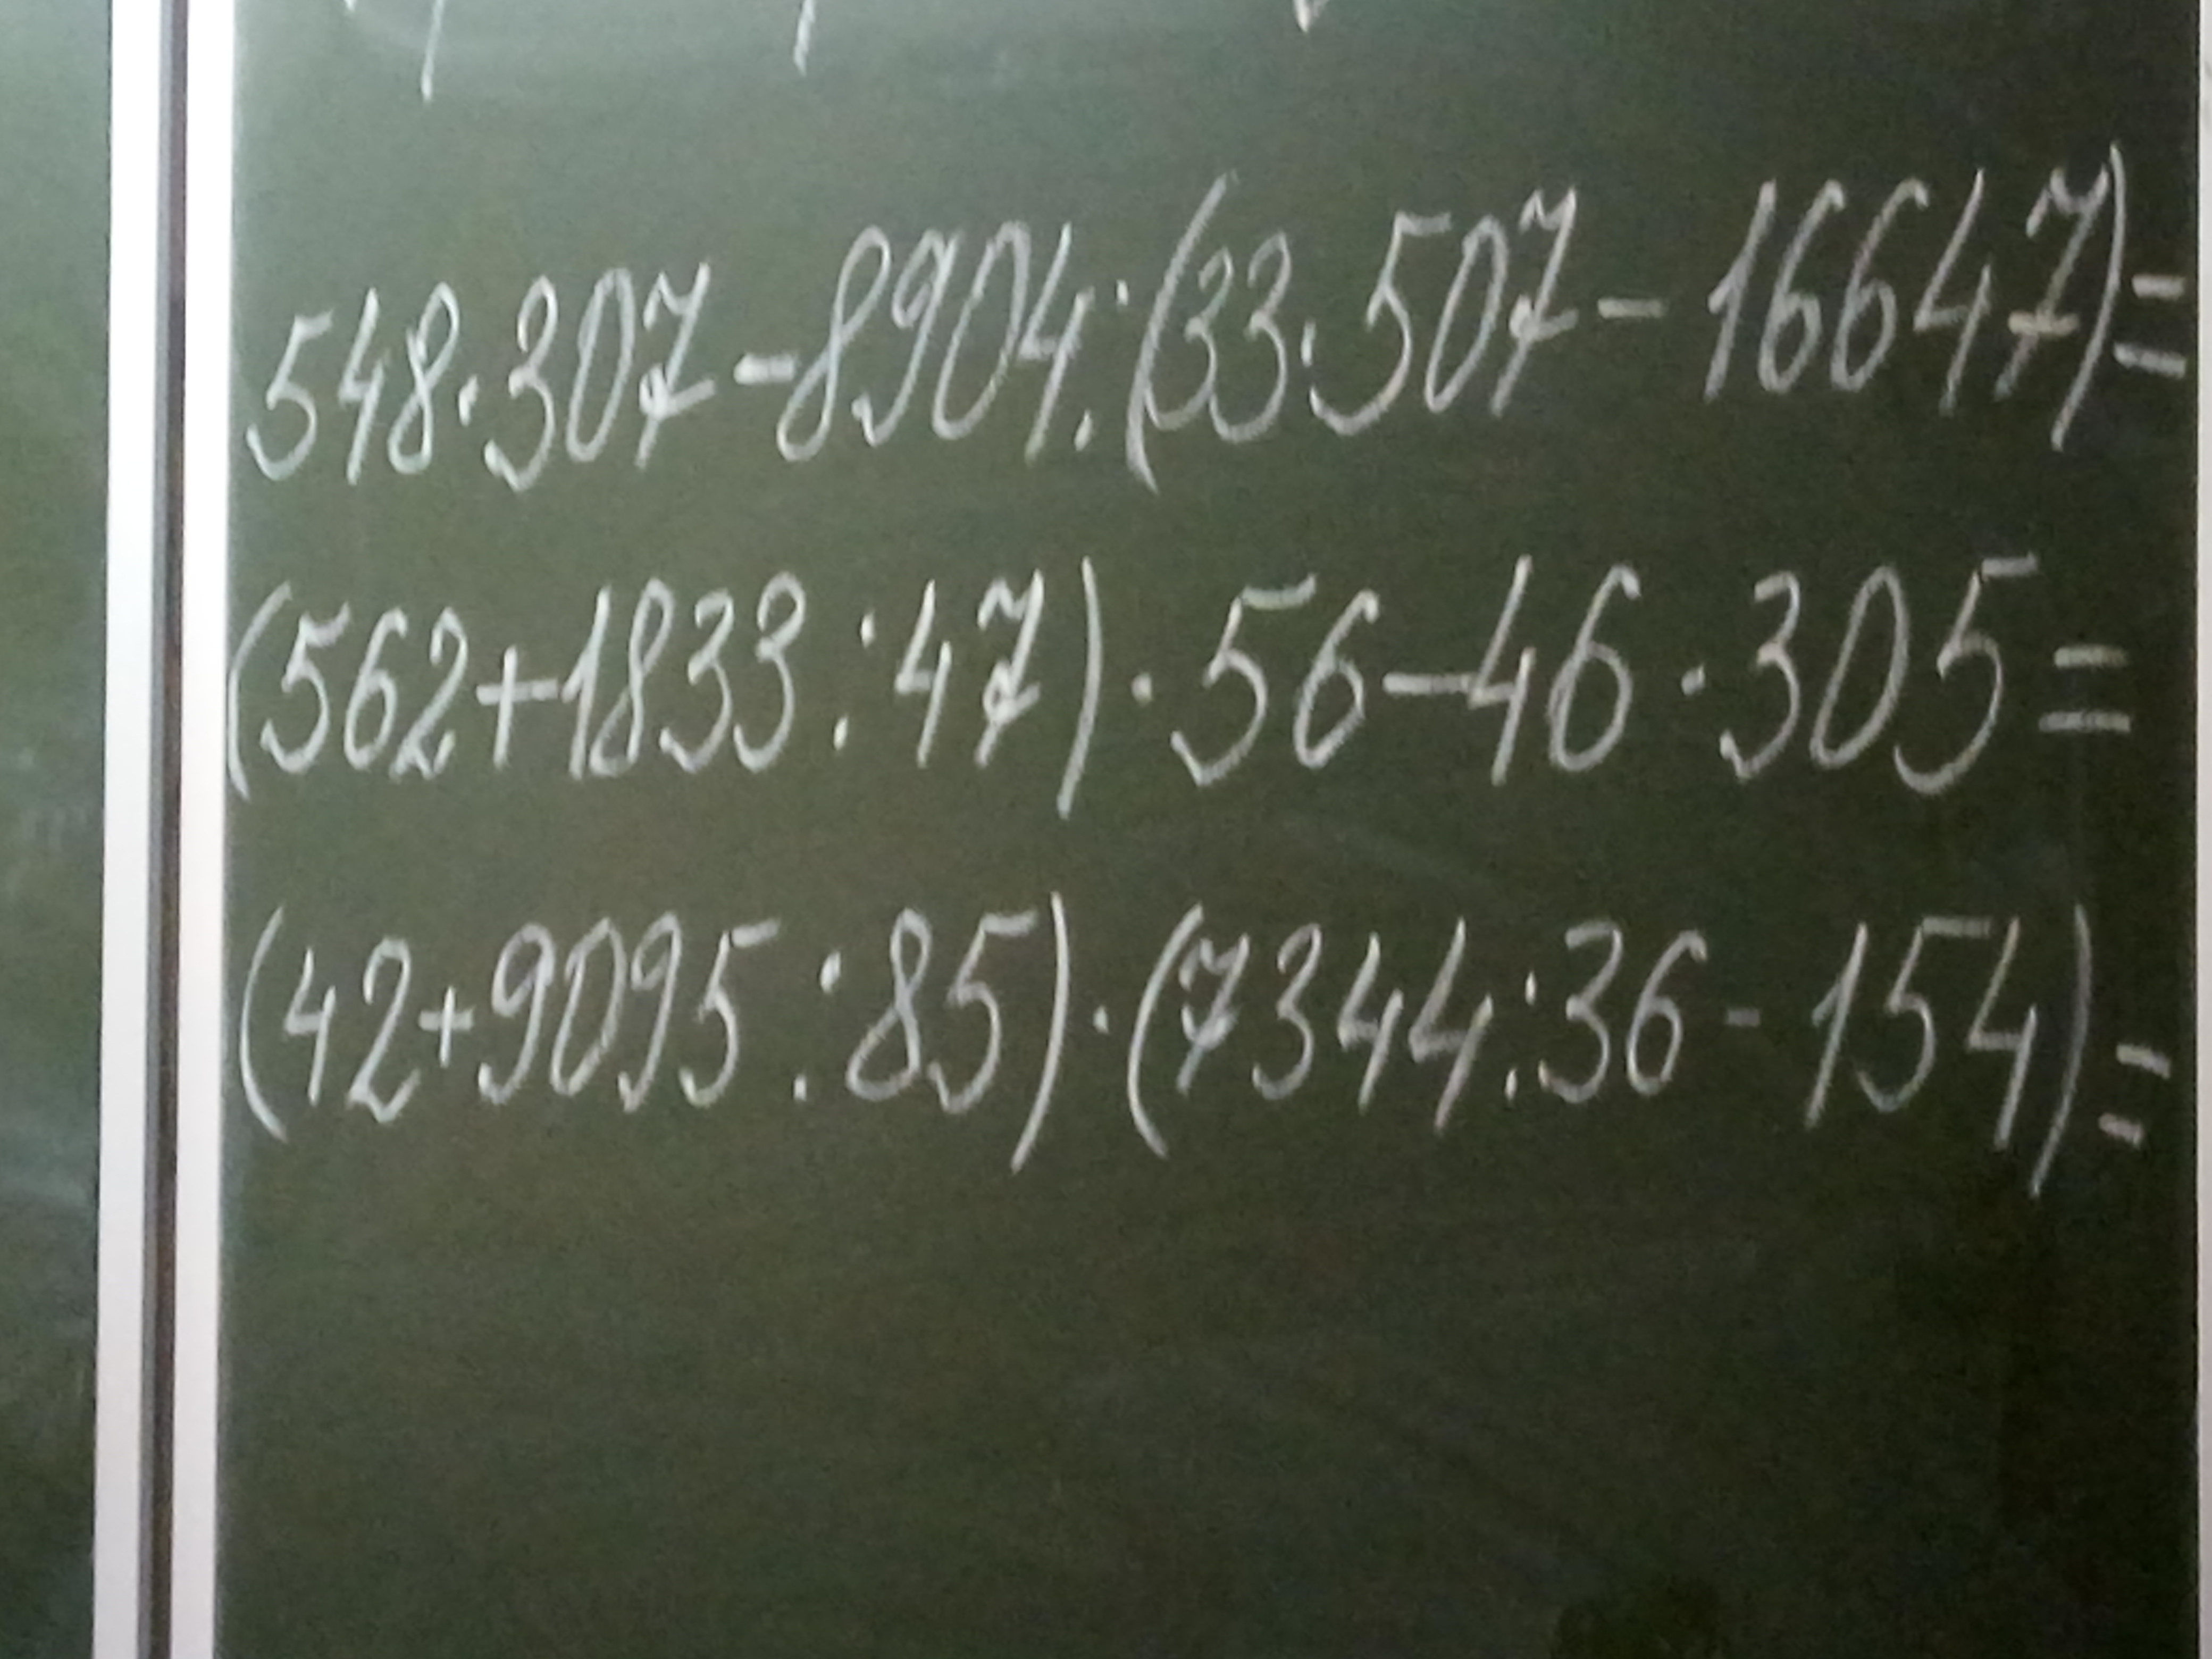 548·307-8904:(33·507-16647)=
(562+1833:47)·56-46·305=
(42+9095:85)·(7344:36-154)=